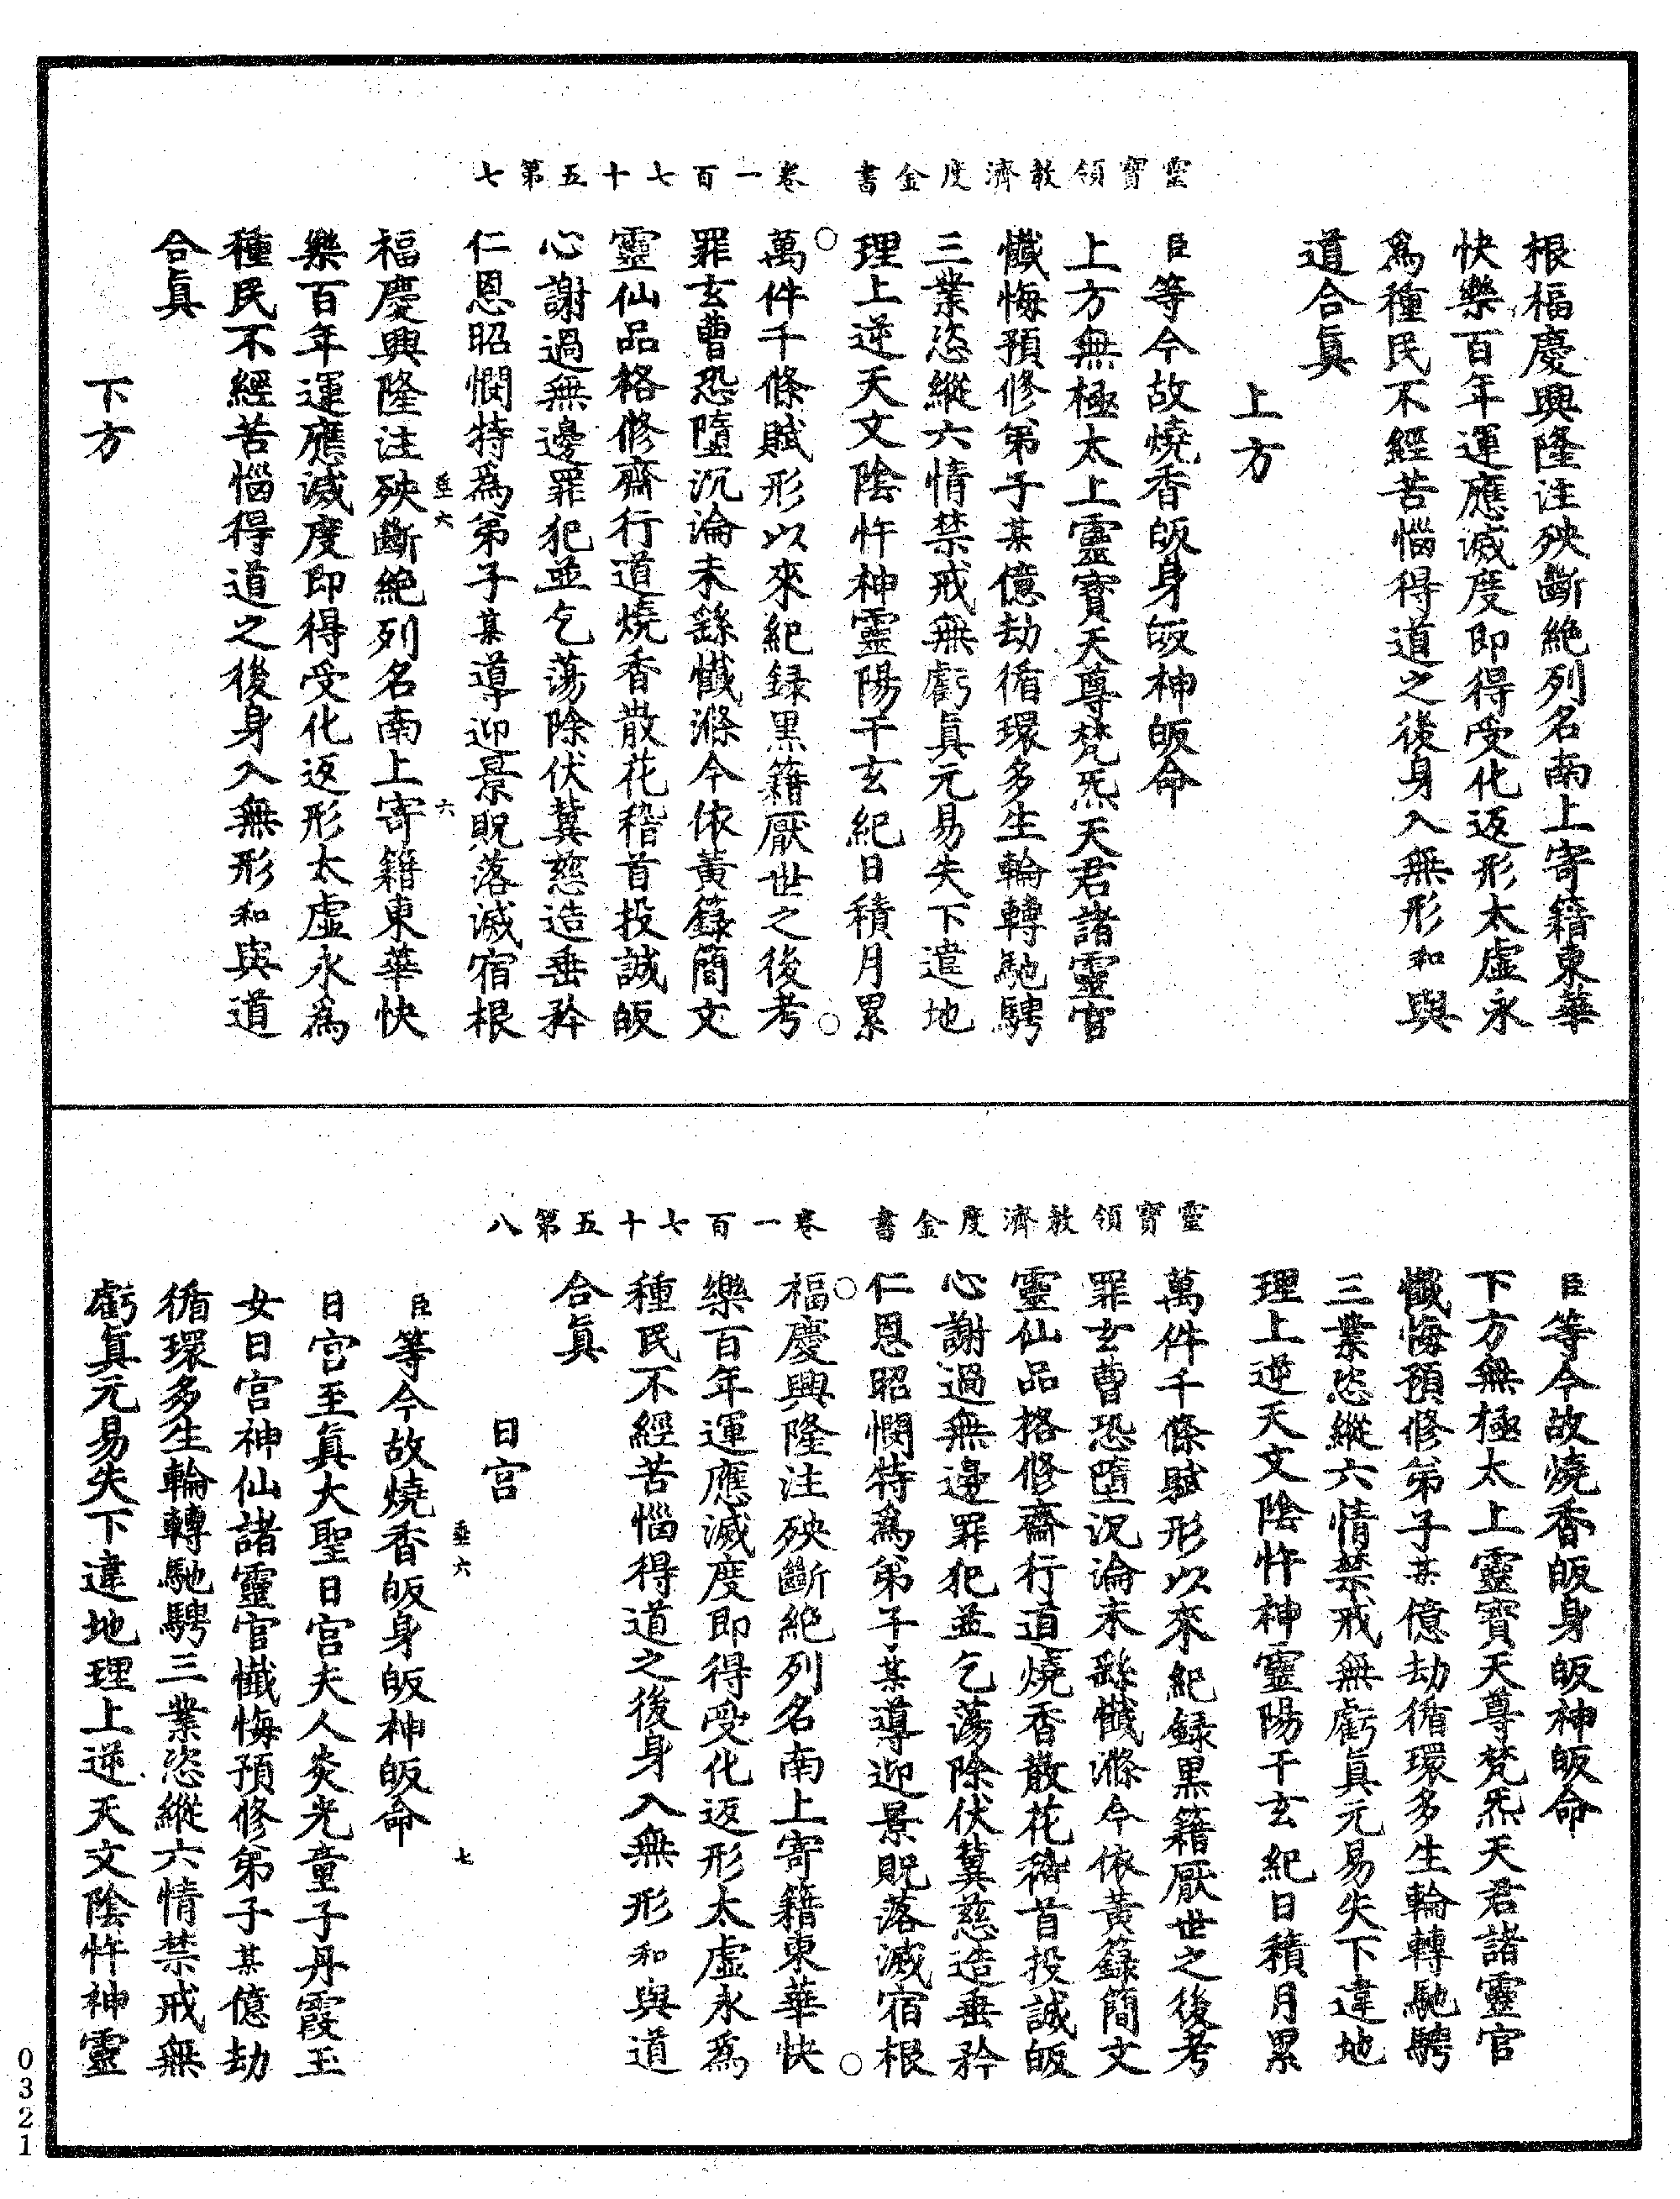 靈寶領教濟度金書　卷一百七十五第七
根福慶興隆注殃斷絶列名南上寄籍東華
快樂百年運應滅度即得受化返形太虛永
爲種民不經苦惱得道之後身入無形和與
道合眞
上方
臣等今故燒香皈身皈神皈命
上方無極太上靈寶天尊梵炁天君諸靈官
懺悔預修弟子某億劫循環多生輪轉馳騁
三業恣縱六情禁戒無虧眞元易失下違地
理上逆天文陰忤神靈陽干玄紀日積月累
萬件千條賦形以來紀録黑籍厭世之後考
罪玄曹恐墮沉淪未繇懺滌今依黄籙簡文
靈仙品格修齋行道燒香散花稽首投誠皈
心謝過無邊罪犯並乞蕩除伏冀慈造垂矜
仁恩昭憫特爲弟子某導迎景貺落滅宿根
垂六　六
福慶興隆注殃斷絶列名南上寄籍東華快
樂百年運應滅度即得受化返形太虛永爲
種民不經苦惱得道之後身入無形和與道
合眞
下方
靈寶領教濟度金書　卷一百七十五第八
臣等今故燒香皈身皈神皈命
下方無極太上靈寶天尊梵炁天君諸靈官
懺悔預修弟子某億劫循環多生輪轉馳騁
三業恣縱六情禁戒無虧眞元易失下違地
理上逆天文陰忤神靈陽干玄紀日積月累
萬件千條賦形以來紀録黑籍厭世之後考
罪玄曹恐墮沉淪未繇懺滌今依黄籙簡文
靈仙品格修齋行道燒香散花稽首投誠皈
心謝過無邊罪犯並乞蕩除伏冀慈造垂矜
仁恩昭憫特爲弟子某導迎景貺落滅宿根
福慶興隆注殃斷絶列名南上寄籍東華快
樂百年運應滅度即得受化返形太虛永爲
種民不經苦惱得道之後身入無形和與道
合眞
日宮
垂六　七
臣等今故燒香皈身皈神皈命
日宮至眞大聖日宮夫人炎光童子丹霞玉
女日宮神仙諸靈官懺悔預修弟子某億劫
循環多生輪轉馳騁三業恣縱六情禁戒無
虧眞元易失下違地理上逆天文陰忤神靈
0321